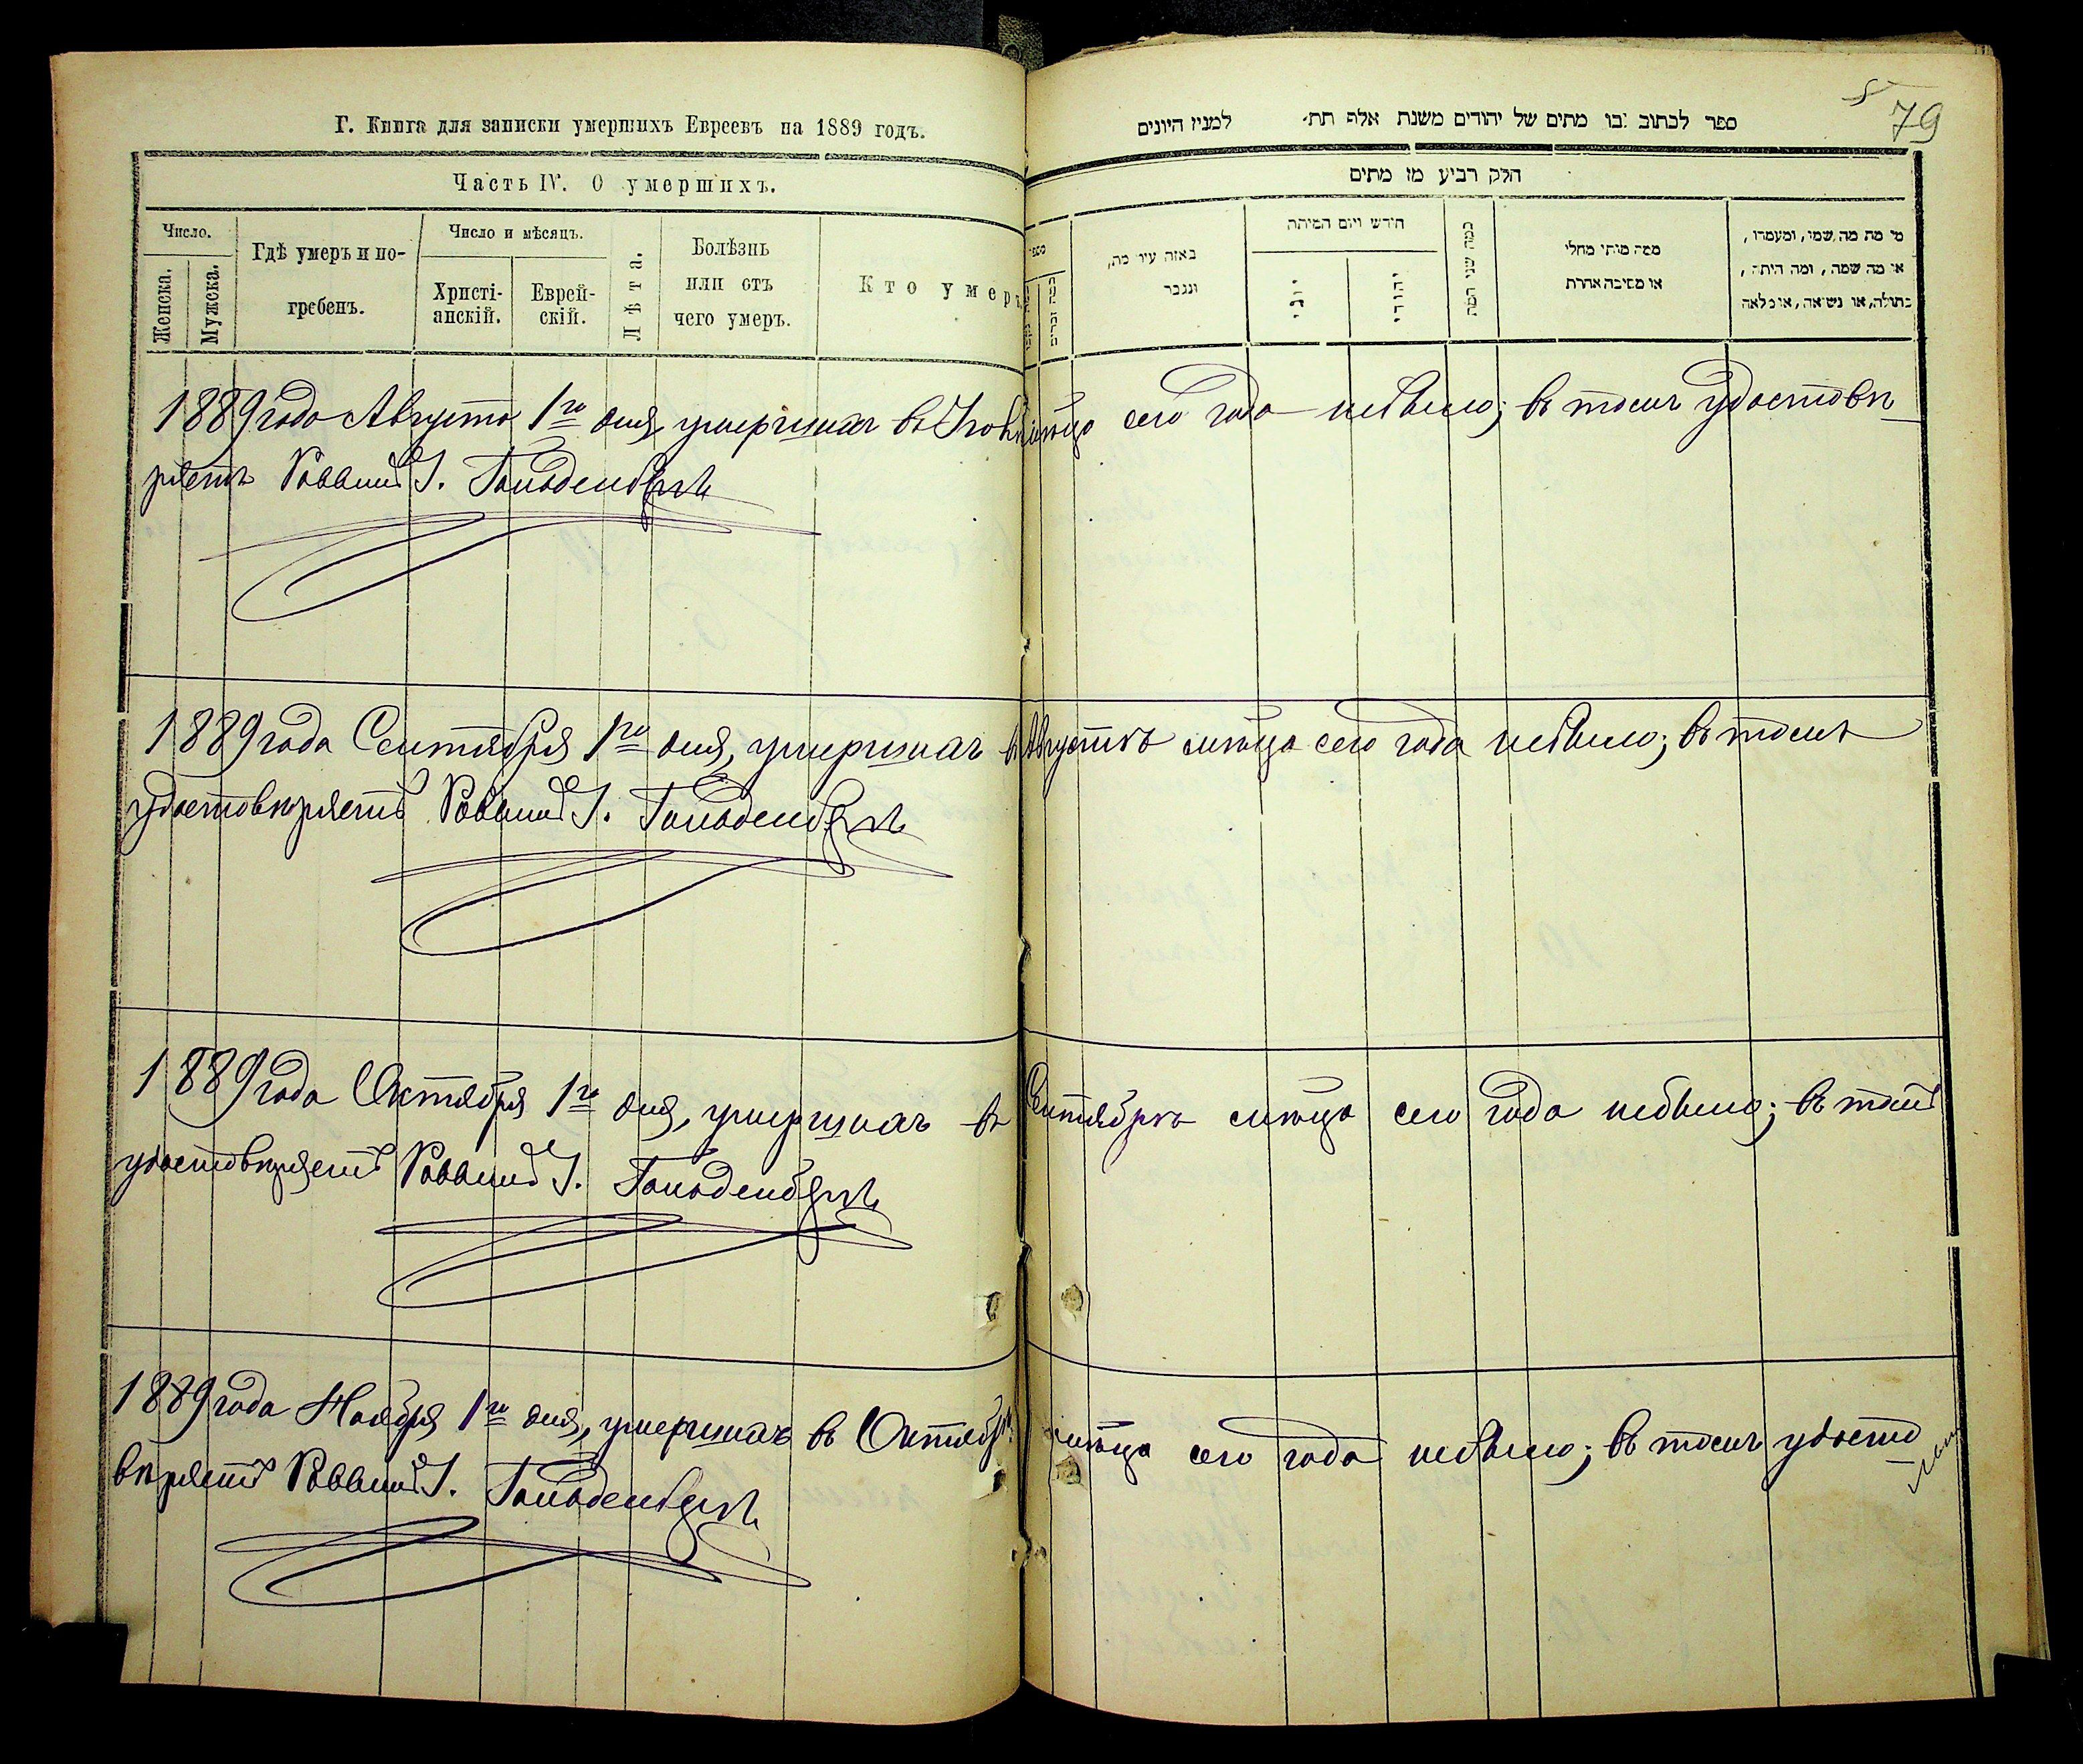 Г. Книга для записки умершихъ Евреевъ на 1889 годъ.
Часть IV. О умершихъ.
Число.
Женска.
Мужска.
Гдѣ умеръ и по-
гребенъ.
Число и мѣсяцъ.
Христі-
анскій.
Еврей-
скій.
Лѣта.
Болѣзнь
или отъ
чего умеръ.
Кто умеръ
79
ספר לכתוב בו מתים של יהודים משנת אלף תת׳ למנין היונים
חלק רביע מן מתים
מספר
באזה עיר מת,
ונגבר
חודש ויום המיתה
יוני
יהודי
כמה שני המת
מסה מותו מחלי
או מסיבה אחרת
מי מת מה שמו, ומעמדו,
או מה שמה, ומה היתה,
בתולה, או נשואה, או כלאה
1889 года Августа 1го дня, умершихъ въ Іюлѣ мѣсца сего года небыло; въ томъ удостовѣ-
ряетъ Раввинъ І. Гольденбергъ
1889 года Сентября 1го дня, умершихъ въ Августѣ мѣсца сего года небыло; въ томъ
удостовѣряетъ Раввинъ І. Гольденбергъ
1889 года Октября 1го дня, умершихъ въ Сентябрѣ мѣсца сего года небыло; въ томъ
удостовѣряетъ Раввинъ І. Гольденбергъ
1889 года Ноября 1го дня, умершихъ въ Октябрѣ мѣсца сего года небыло; въ томъ удосто-
вѣряетъ Раввинъ І. Гольденбергъ